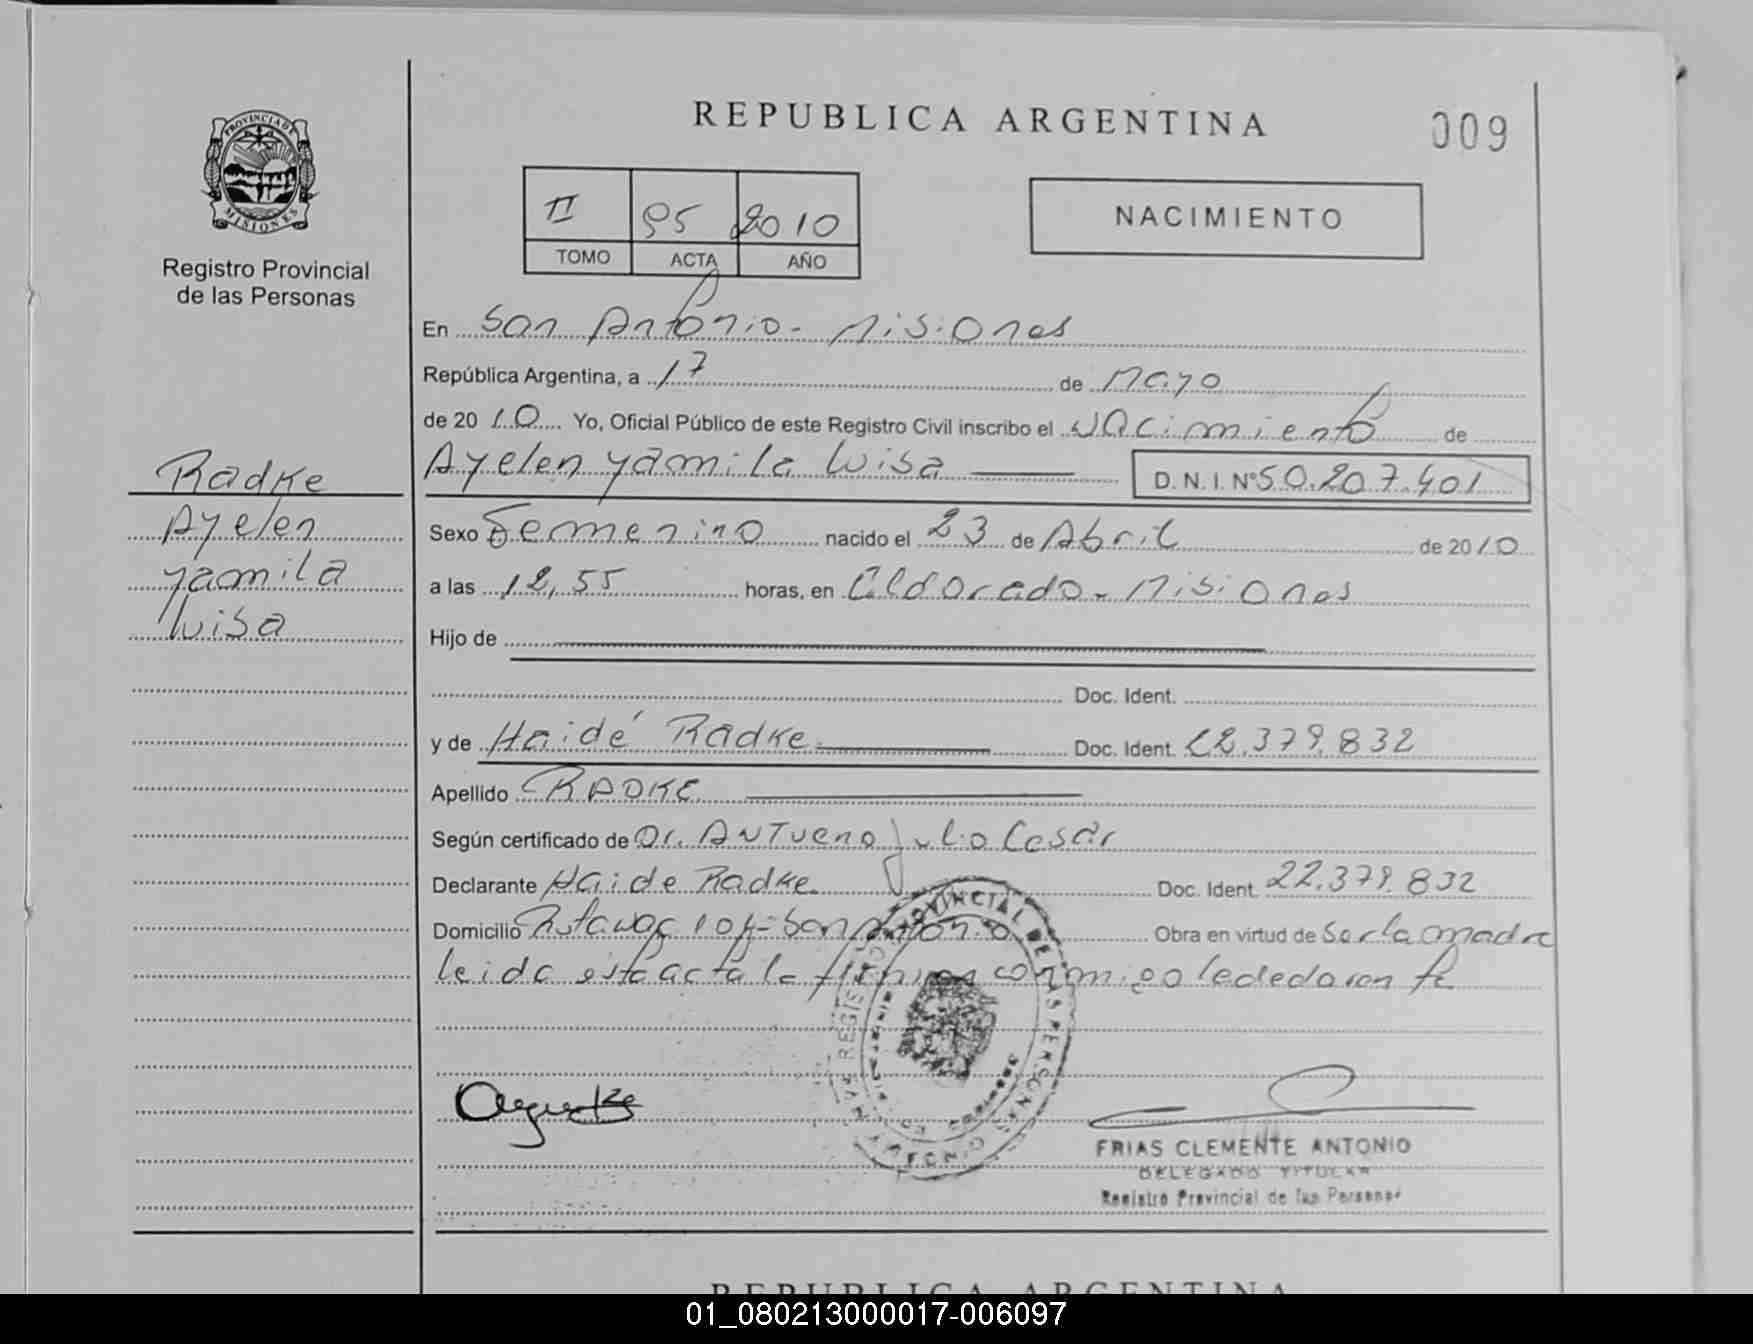 REPUBLICA ARGENTINA
009
PROVINCIA DE
MISIONES
Registro Provincial
de las Personas
II 95 2010
TOMO ACTA AÑO
NACIMIENTO
En San Antonio - Misiones
República Argentina, a 17 de Mayo
de 20 10 Yo, Oficial Público de este Registro Civil inscribo el Nacimiento de
Ayelen yamila Luisa D.N.I. Nº 50.207.401
Radke
Ayelen
yamila
Luisa
Sexo Femenino nacido el 23 de Abril de 2010
a las 12,55 horas, en Eldorado - Misiones
Hijo de
Doc. Ident.
y de Haidé Radke Doc. Ident. 22.379.832
Apellido RADKE
Según certificado de Dr. ANTueno Julio Cesar
Declarante Haide Radke Doc. Ident. 22.379.832
Domicilio 101 - San Antonio Obra en virtud de Ser la madre
leida esta acta la firman conmigo de fe
REGISTRO PROVINCIAL DE LAS PERSONAS
FRIAS CLEMENTE ANTONIO
DELEGADO TITULAR
Registro Provincial de las Personas
REPUBLICA ARGENTINA
01_080213000017-006097